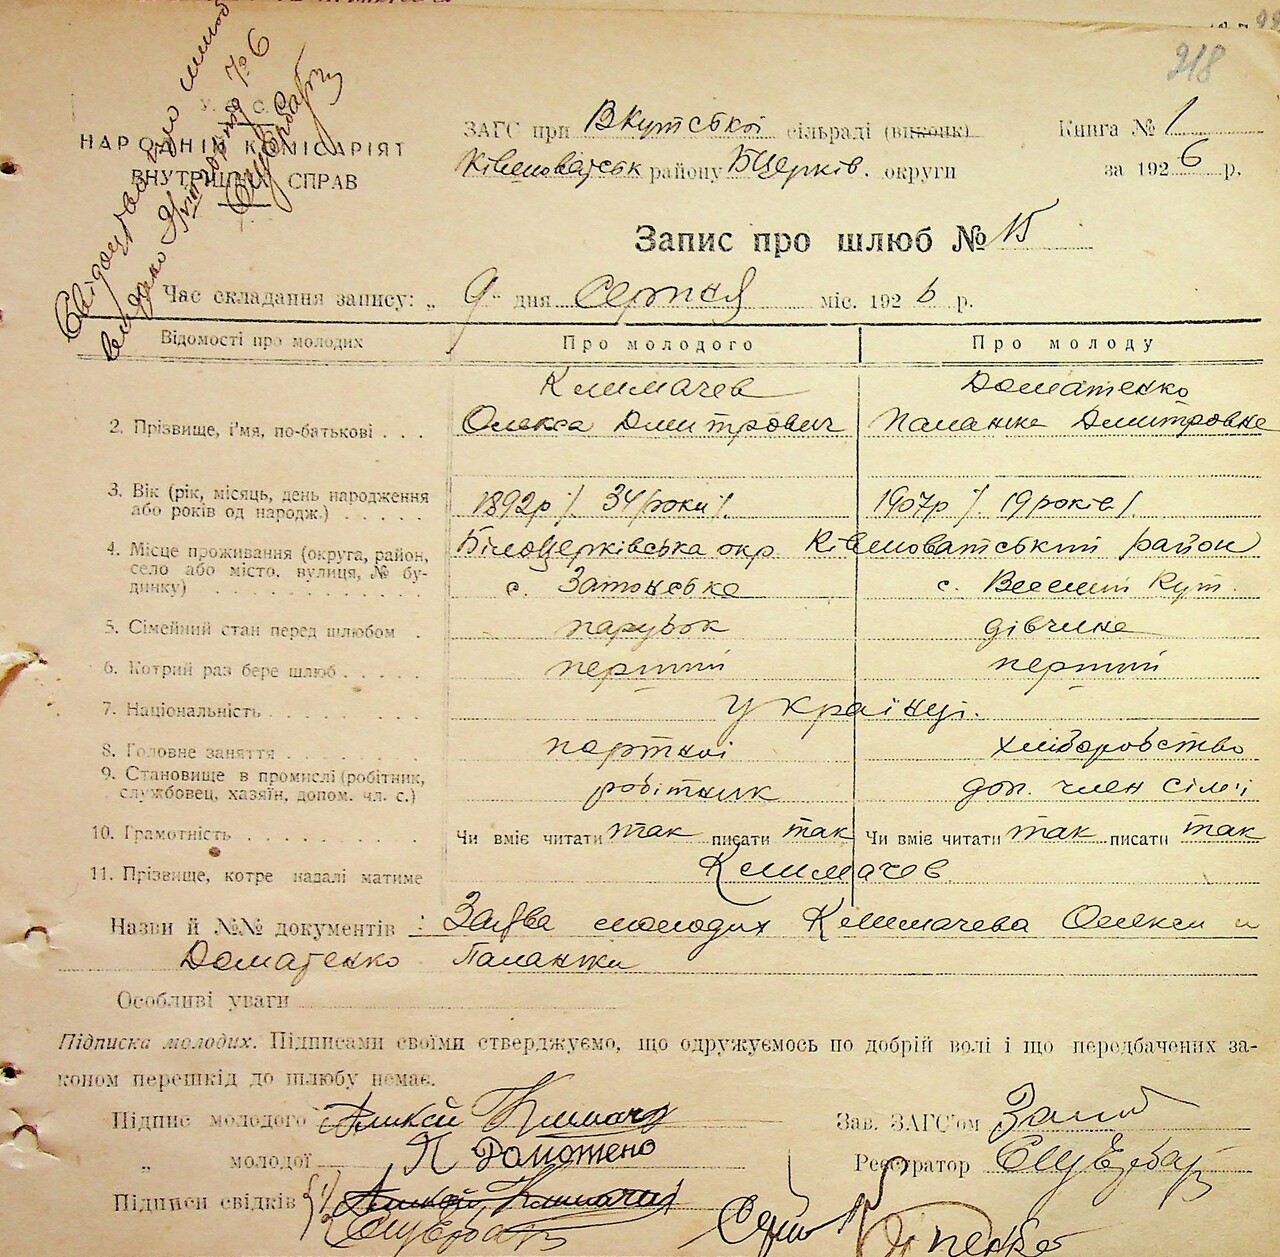 218
Свідоцтво про шлюб
видано № 6
У. С.
НАРОДНІЙ КОМІСАРІЯТ
ВНУТРІШНІХ СПРАВ
ЗАГС при ВКутської сільраді (виконк) Книга № 1
Ківшоватськ району БЦерків. округи за 1926 р.
Запис про шлюб № 15
Час складання запису: „ 9 " дня Серпня міс. 1926 р.
Відомості про молодих Про молодого Про молоду
Климачев Доматенко
2. Прізвище, і'мя, по-батькові . . . Олекса Дмитрович Палажка Дмитровна
3. Вік (рік, місяць, день народження 1892р /. 34 роки/. 1907р /. 19 років/.
або років од народж.) . . . . .
4. Місце проживання (округа, район, Білоцерківська окр Ківшоватський район
село або місто, вулиця, № бу- с. Затонське с. Веселий Кут.
динку) . . . . . . . . . . . .
5. Сімейний стан перед шлюбом . парубок дівчина
6. Котрий раз бере шлюб . . . . . перший перший
7. Національність . . . . . . . . . українці.
8. Головне заняття . . . . . . . . портної хліборобство
9. Становище в промислі (робітник, робітник доп. член сім'ї
службовец, хазяїн, допом. чл. с.)
10. Грамотність . . . . . . . . . Чи вміє читати так писати так Чи вміє читати так писати так
11. Прізвище, котре надалі матиме Климачев
Назви й №№ документів : Заява молодих Климачева Олекси и
Доматенко Палажки
Особливі уваги
Підписка молодих. Підписами своїми стверджуємо, що одружуємось по добрій волі і що передбачених за-
коном перешкід до шлюбу немає.
Підпис молодого Зав. ЗАГС'ом
„ молодої П Доматено Реєстратор
Підписи свідків